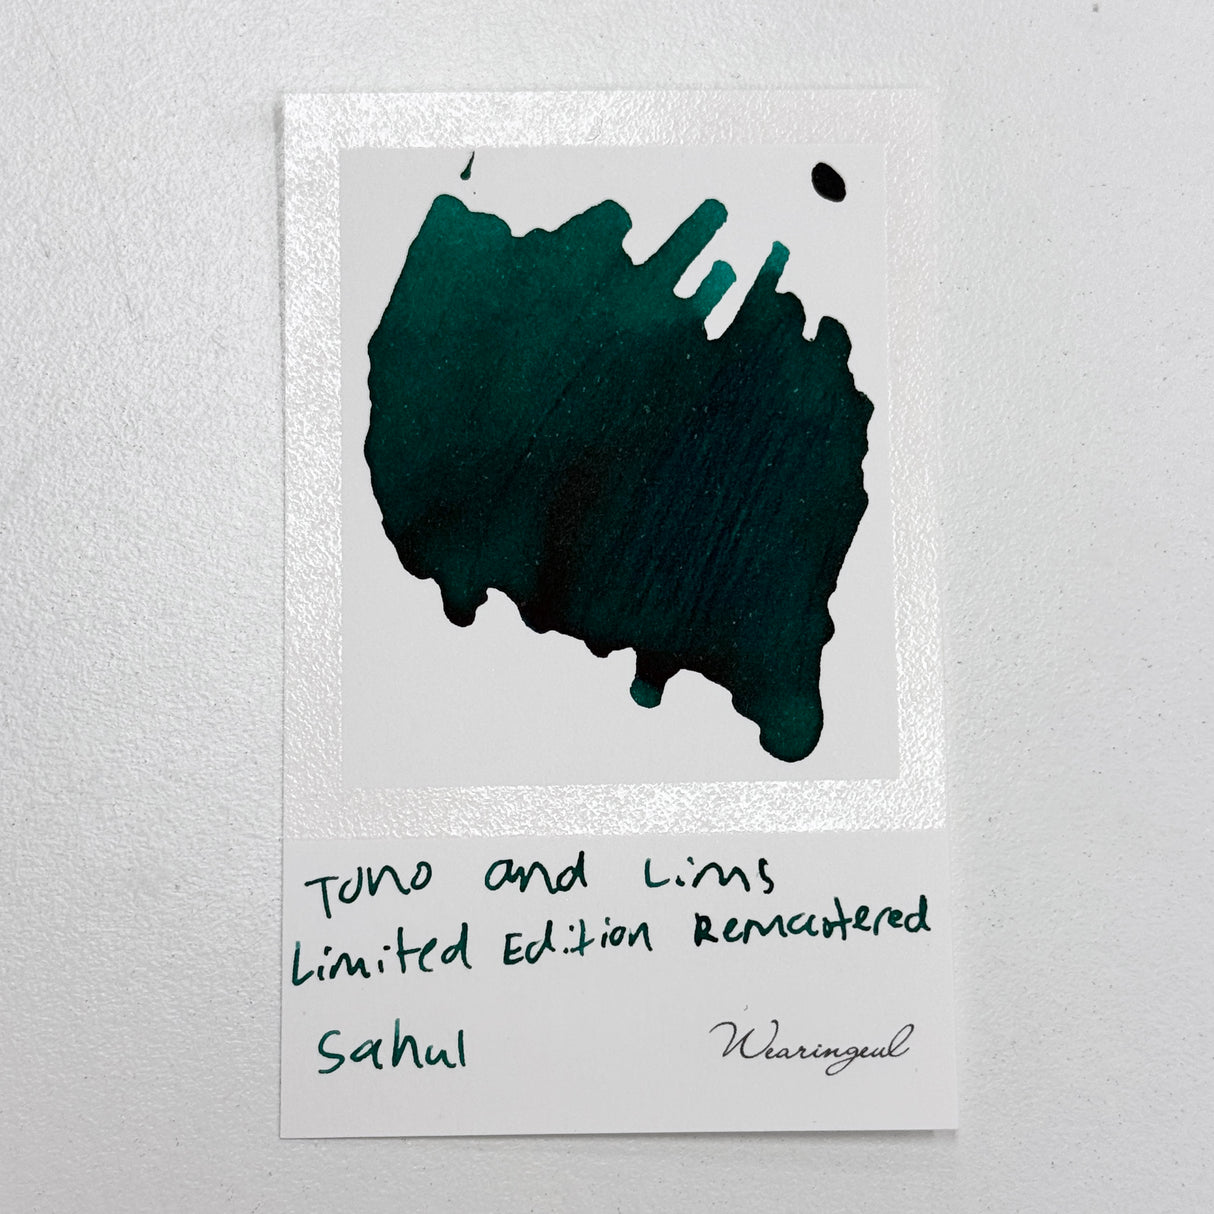 Tono and Lims
Limited Edition Remastered
Sahul
Wearingeul